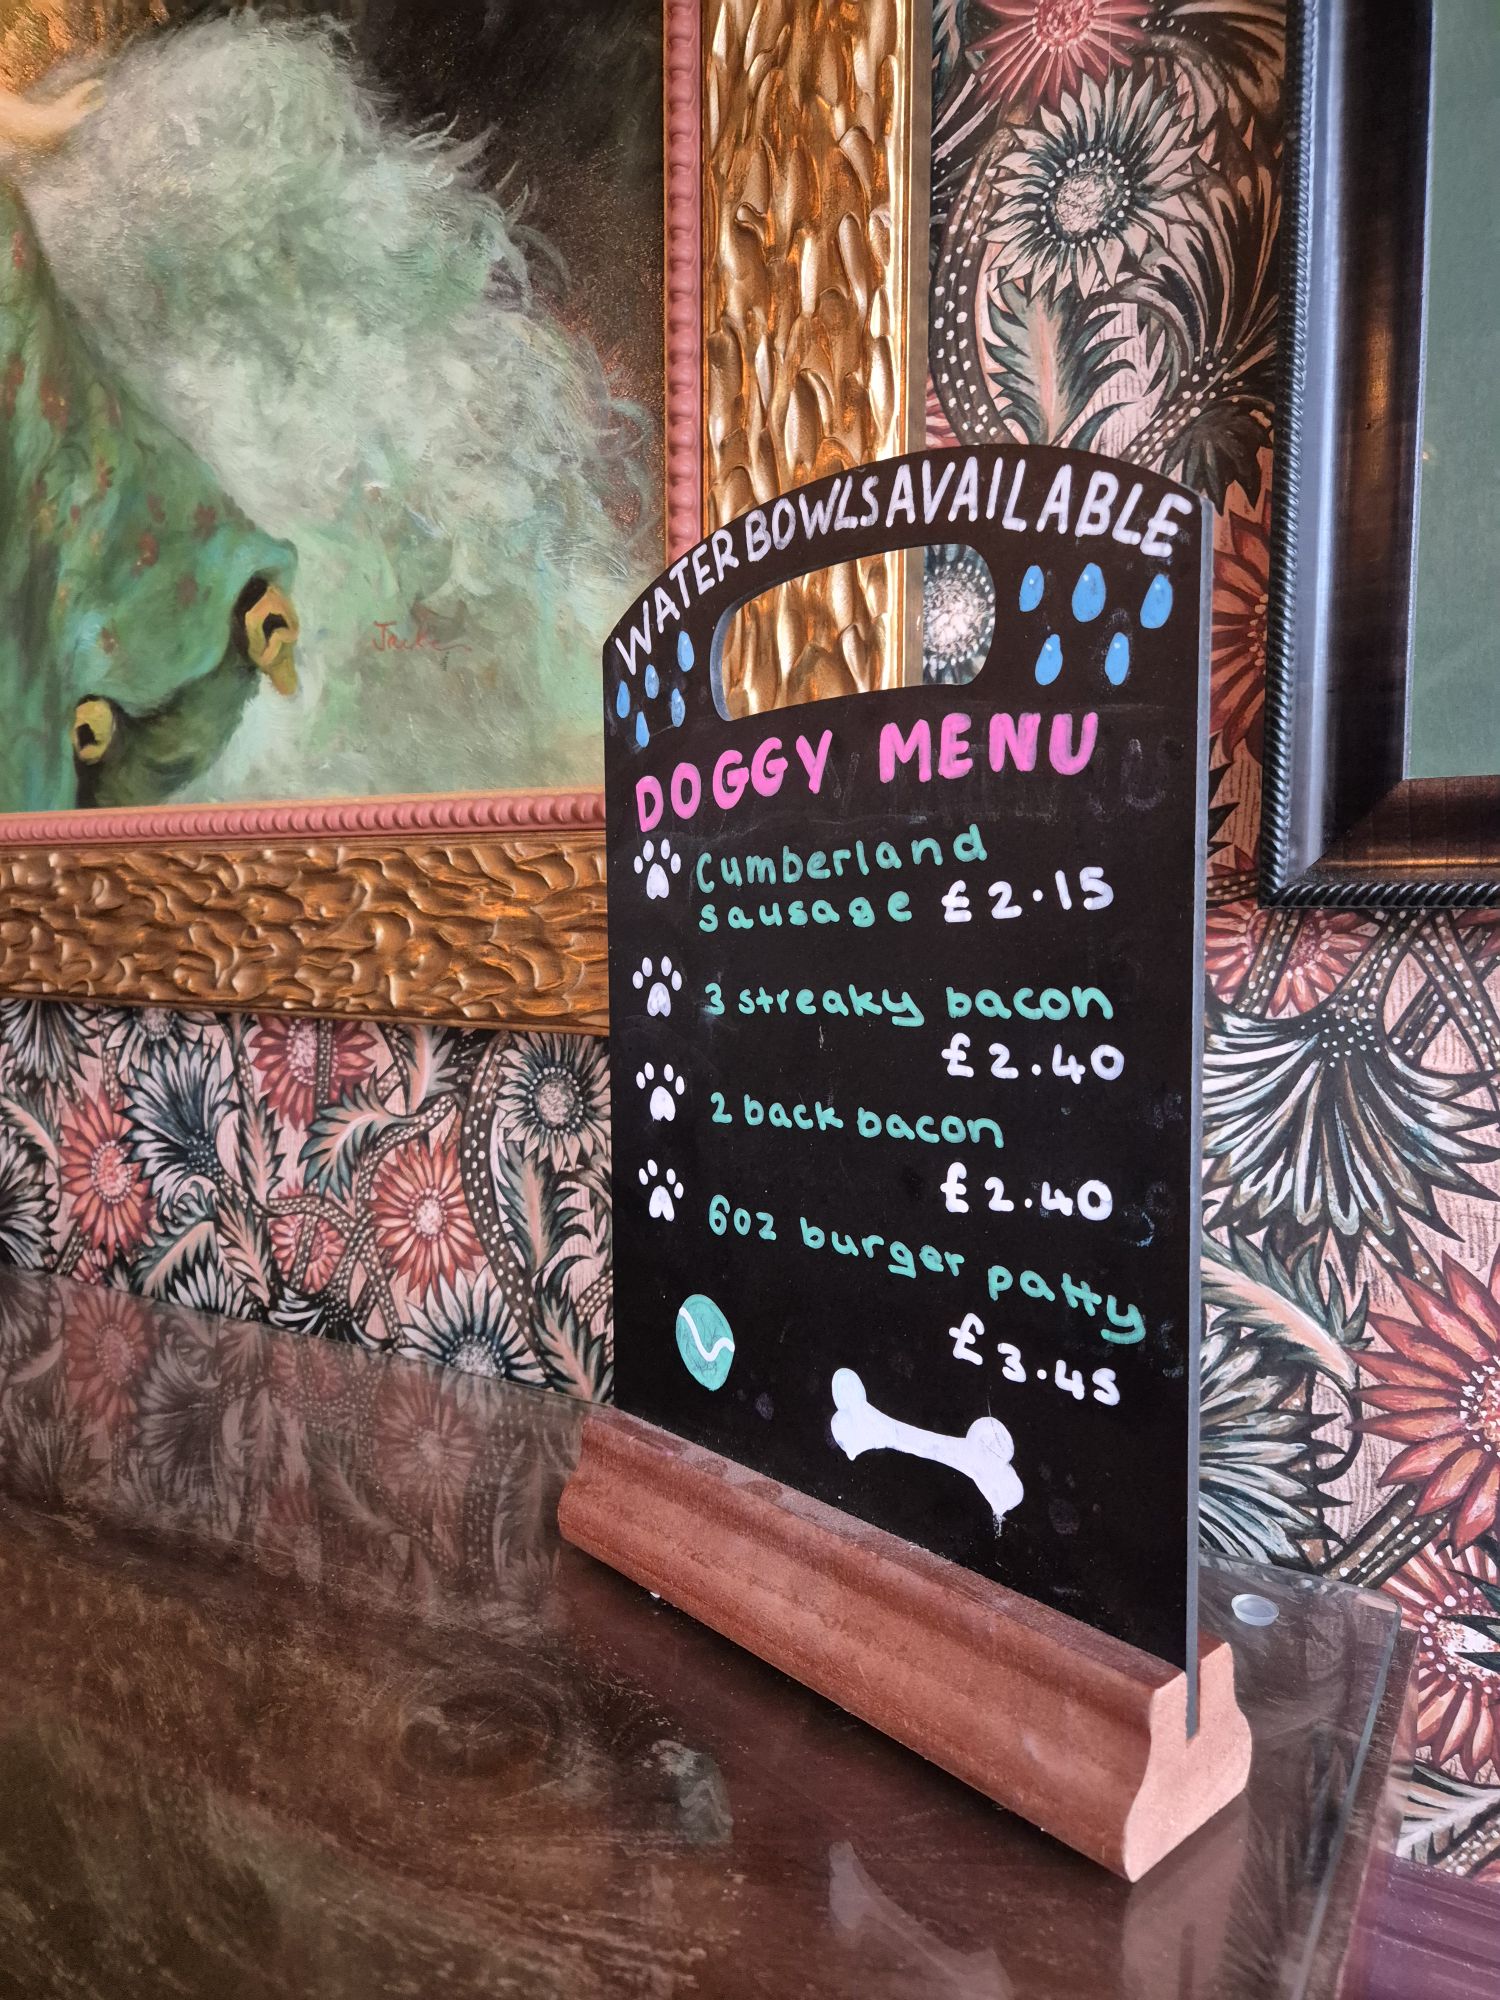 WATER BOWLS AVAILABLE
DOGGY MENU
Cumberland
sausage £2.15
3 streaky bacon
£2.40
2 back bacon
£2.40
6oz burger patty
£3.45